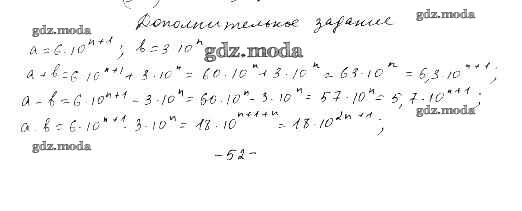 Дополнительное задание
gdz.moda
gdz.moda
a = 6·10^{n+1}; b = 3·10^n
gdz.moda
a + b = 6·10^{n+1} + 3·10^n = 60·10^n + 3·10^n = 63·10^n = 6,3·10^{n+1};
a - b = 6·10^{n+1} - 3·10^n = 60·10^n - 3·10^n = 57·10^n = 5,7·10^{n+1};
gdz.moda
gdz.moda
a·b = 6·10^{n+1}·3·10^n = 18·10^{n+1+n} = 18·10^{2n+1};
gdz.moda
-52-